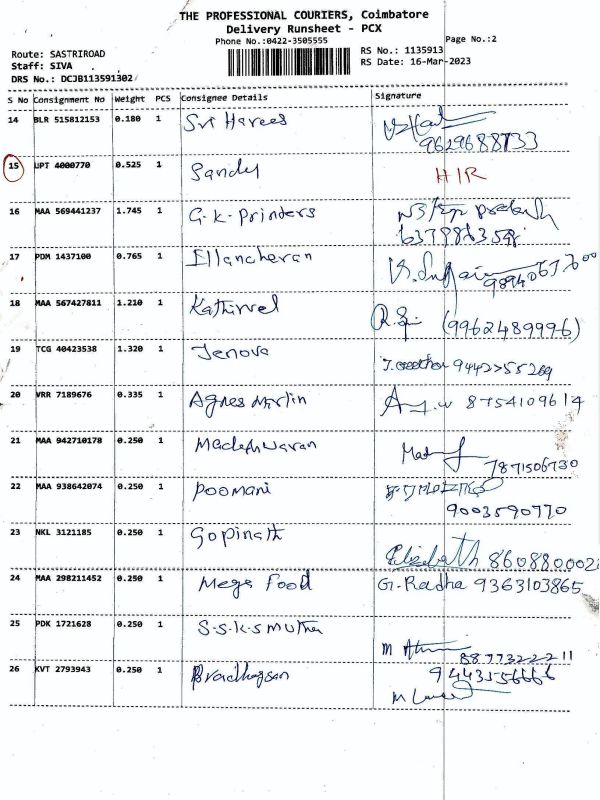 THE PROFESSIONAL COURIERS, Coimbatore
Delivery Runsheet - PCX
Phone No.:0422-3505555
Page No.:2
Route: SASTRIROAD
Staff: SIVA
DRS No.: DCJB113591302
RS No.: 1135913
RS Date: 16-Mar-2023
S No Consignment No Weight PCS Consignee Details Signature
14 BLR 515812153 0.180 1 Sri Harees
9629688733
15 UPT 4000770 0.525 1 Sandy HIR
16 MAA 569441237 1.745 1 G.K-Printers
17 PDM 1437100 0.765 1 Ellancheran
18 MAA 567427811 1.210 1 Kathirvel (9962489996)
19 TCG 40423538 1.320 1 Jenova 9442755269
20 VRR 7189676 0.335 1 Agnes Merlin 8754109614
21 MAA 942710178 0.250 1 Madeshwaran
7871506730
22 MAA 938642074 0.250 1 Poomani
9003590770
23 NKL 3121185 0.250 1 Gopinath
Elizabath
24 MAA 298211452 0.250 1 Mega Food G.Radha 9363103865
25 PDK 1721628 0.250 1 S-S-K-S Muthu
26 KVT 2793943 0.250 1